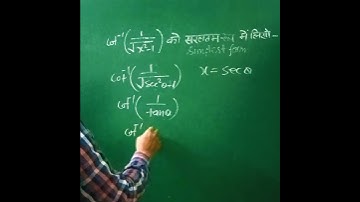 cot⁻¹(1/√x²-1) को सरलतम रूप में लिखो -
Simplest form
cot⁻¹(1/√sec²θ-1) x = secθ
cot⁻¹(1/tanθ)
cot⁻¹